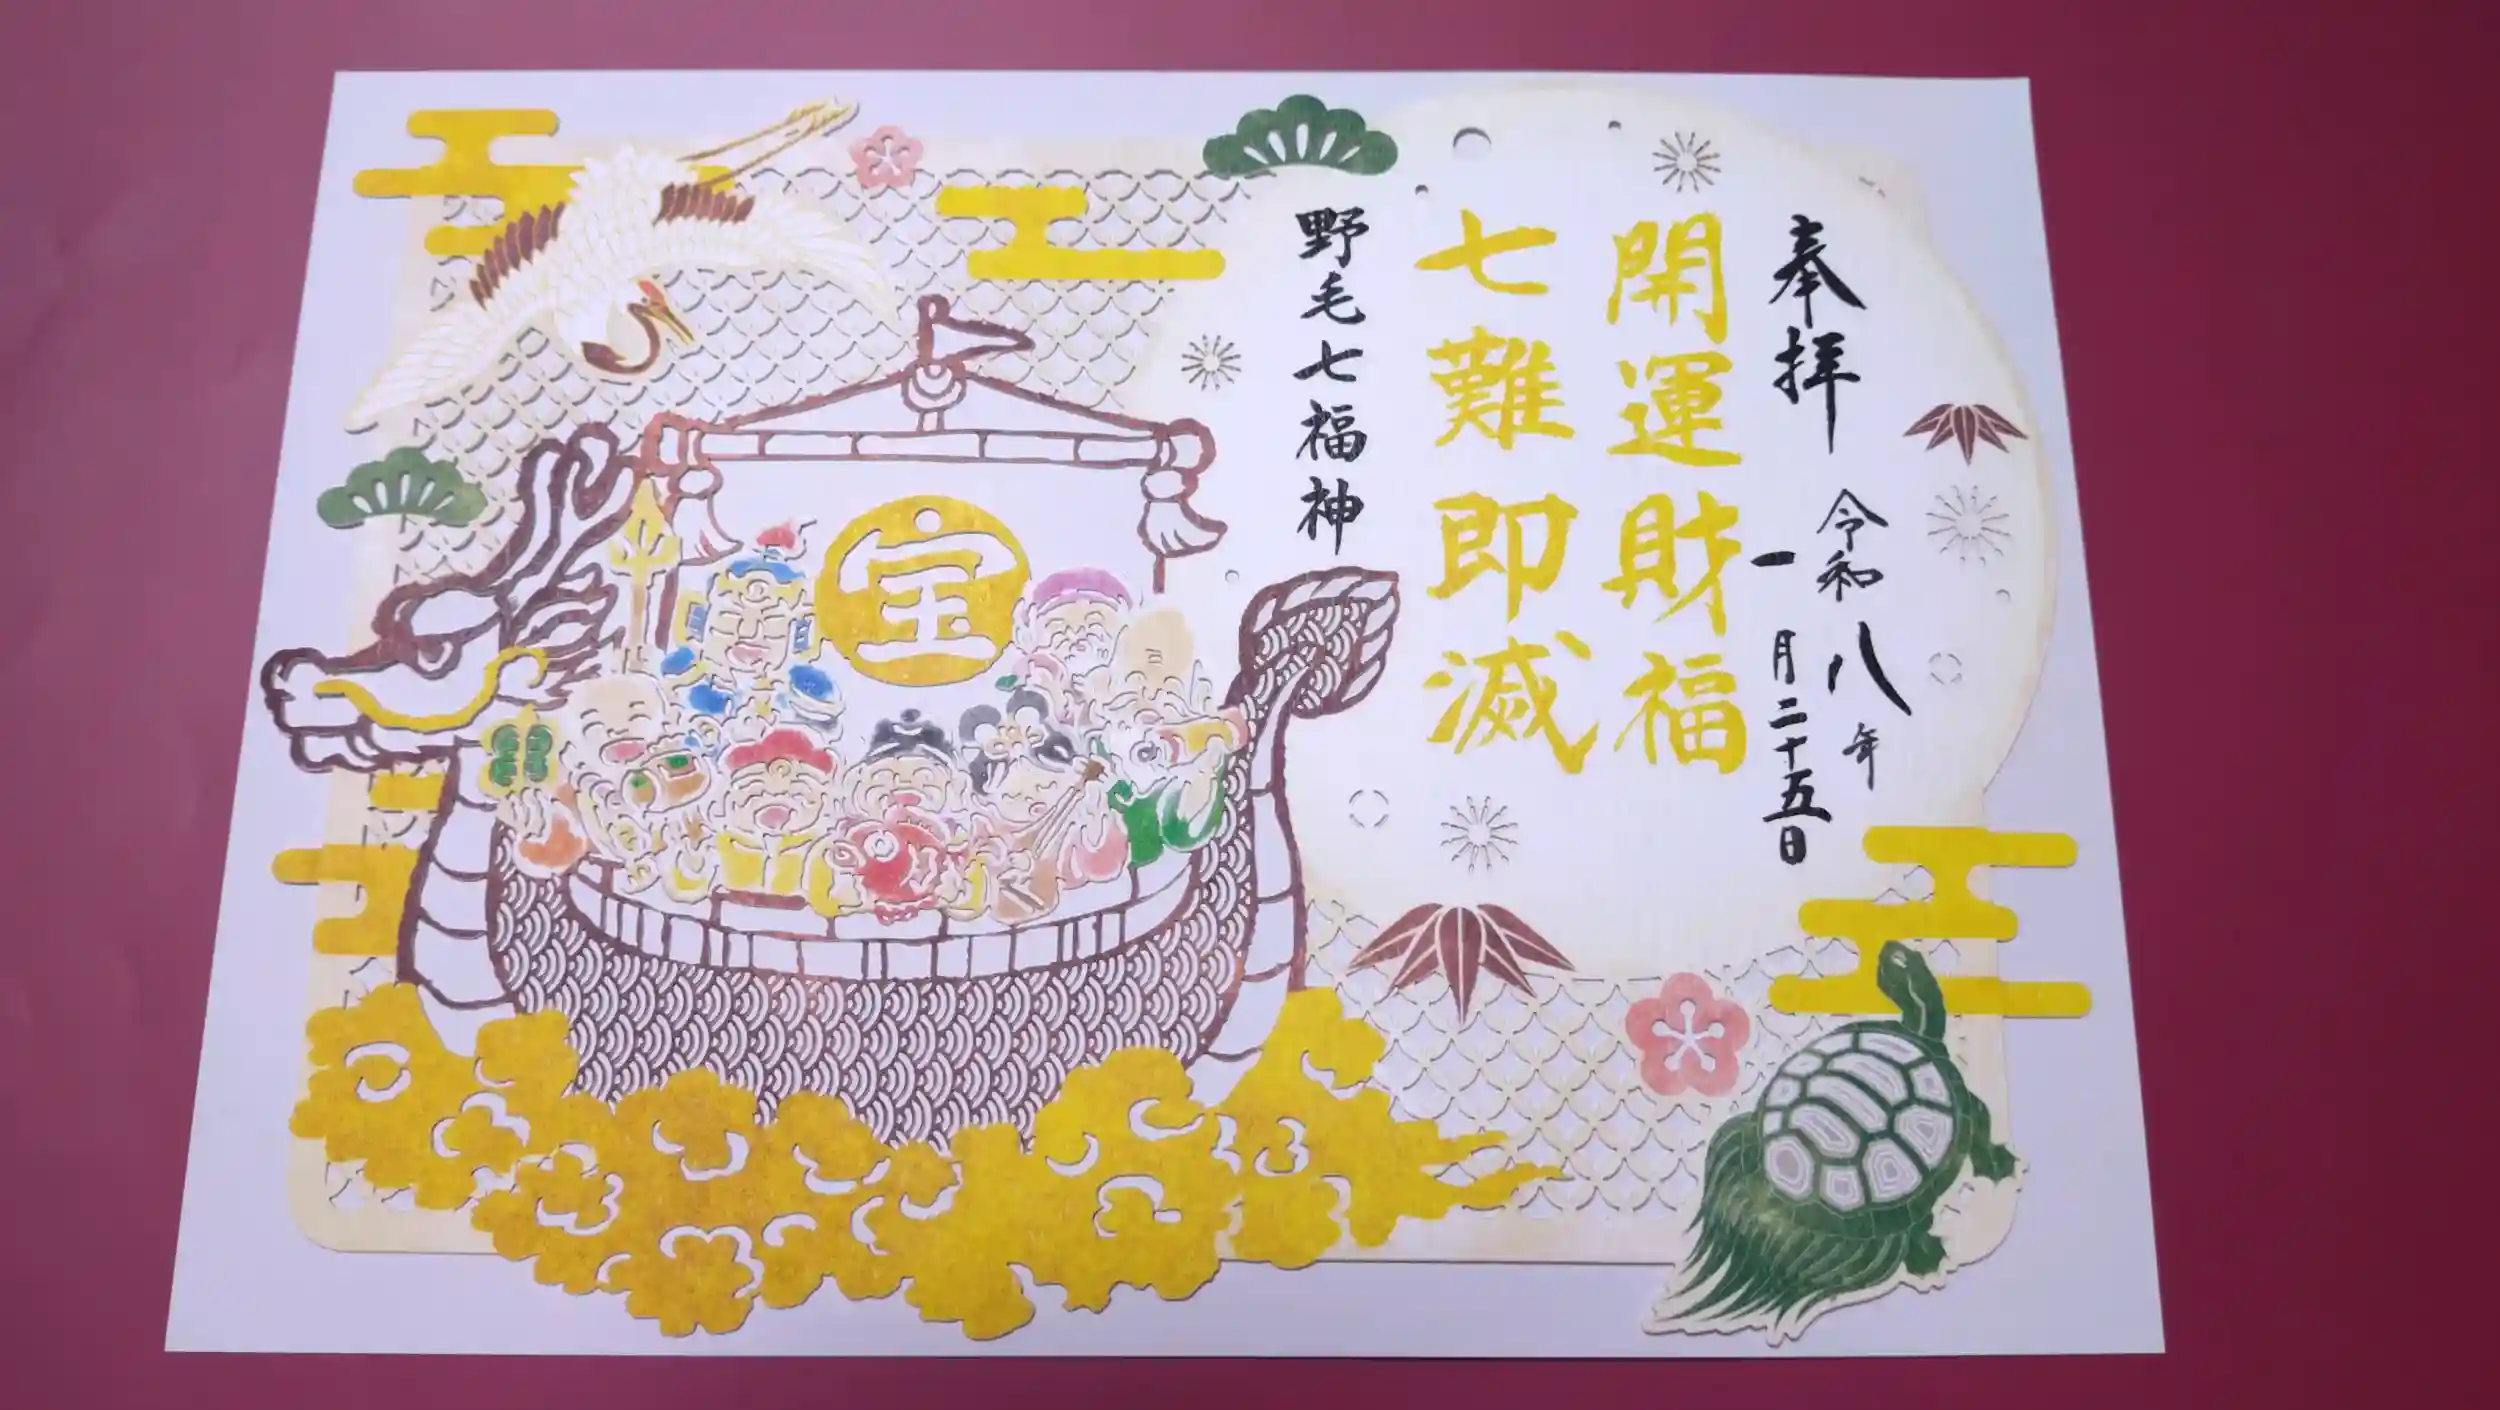 奉拝
令和八年
一月二十五日
開運財福
七難即滅
野毛七福神
宝